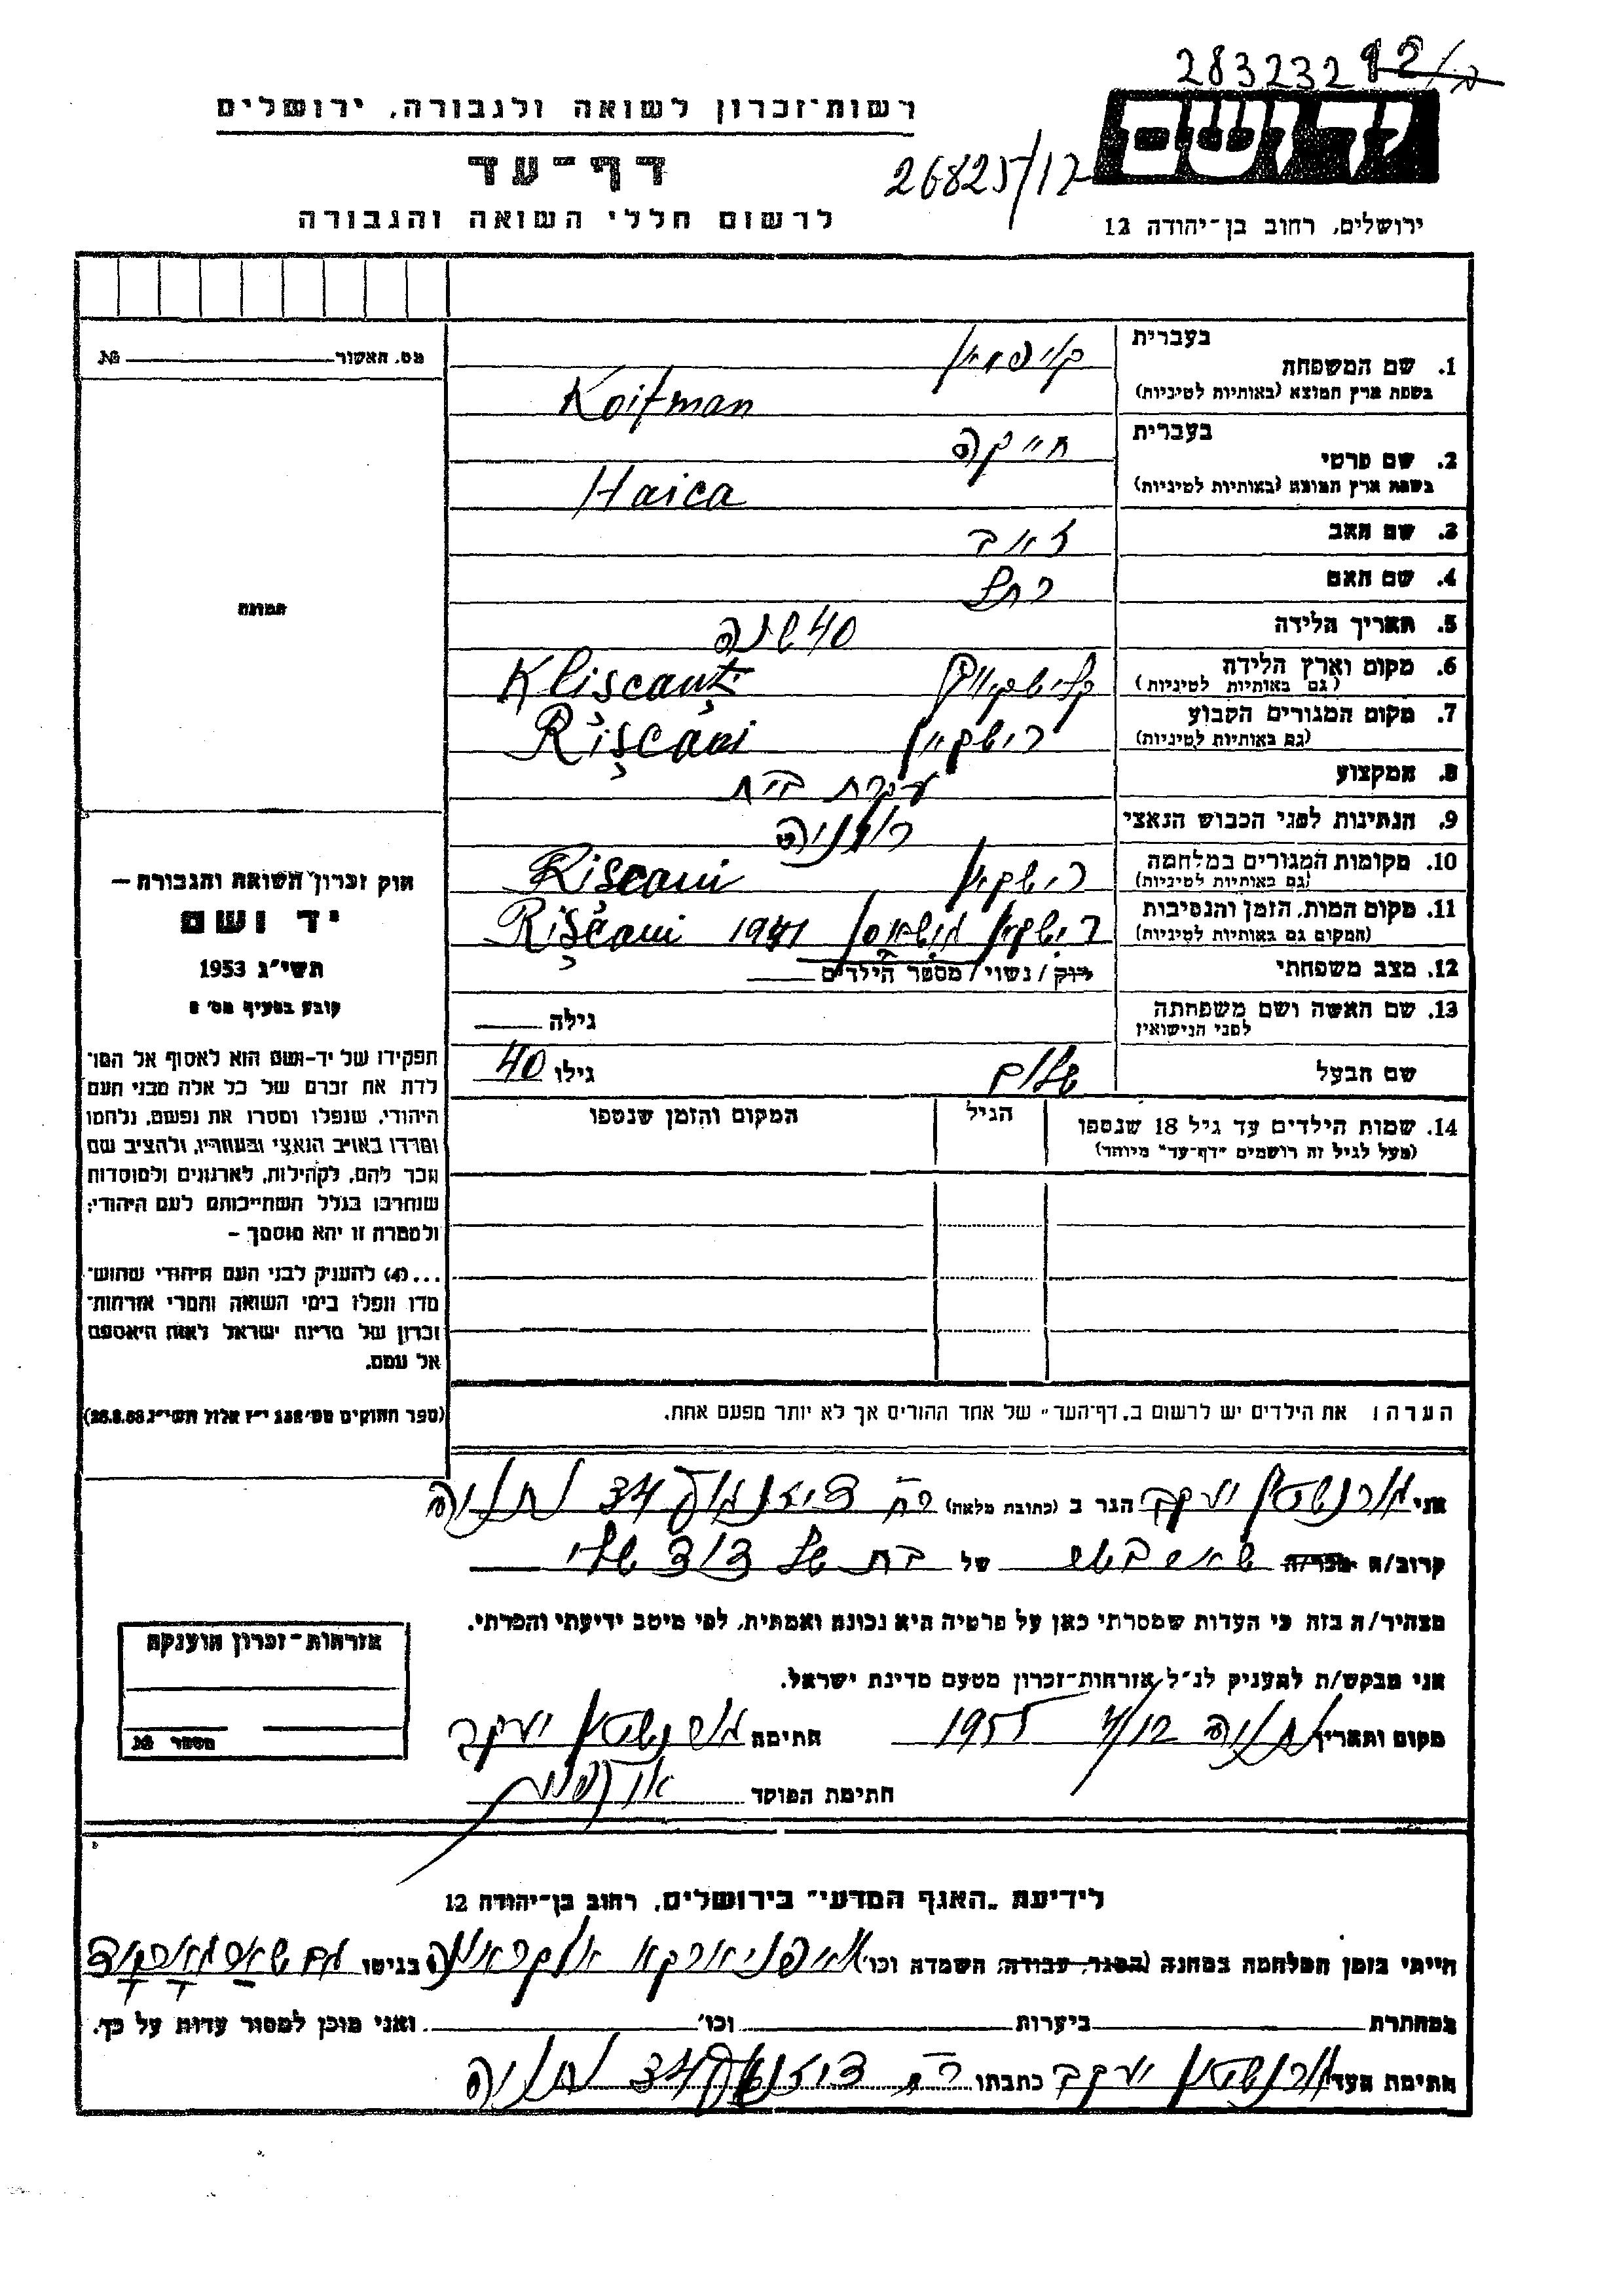 283232
רשות־זכרון לשואה ולגבורה, ירושלים
דף־עד
26825/12
לרשום חללי השואה והגבורה
ירושלים, רחוב בן־יהודה 12
מס. האשור № 
תמונה
בעברית
1. שם המשפחה קויפמאן
בשפת ארץ המוצא (באותיות לטיניות) Koifman
בעברית
2. שם פרטי חייקה
בשפת ארץ המוצא (באותיות לטיניות) Haica
3. שם האב זאב
4. שם האם רחל
5. תאריך הלידה 40 שנה
6. מקום וארץ הלידה Kliscauți
(גם באותיות לטיניות)
7. מקום המגורים הקבוע רישקאן Rișcani
(גם באותיות לטיניות)
8. המקצוע עקרת בית
9. הנתינות לפני הכבוש הנאצי רומניה
10. מקומות המגורים במלחמה רישקאן Rișcani
(גם באותיות לטיניות)
11. מקום המות, הזמן והנסיבות רישקאן 1941 Rișcani
(המקום גם באותיות לטיניות)
12. מצב משפחתי רוק / נשוי / מספר הילדים
13. שם האשה ושם משפחתה גילה
לפני הנישואין
שם הבעל שלום גילו 40
14. שמות הילדים עד גיל 18 שנספו הגיל המקום והזמן שנספו
(מעל לגיל זה רושמים "דף־עד" מיוחד)
הערה: את הילדים יש לרשום ב„דף־העד" של אחד ההורים אך לא יותר מפעם אחת.
חוק זכרון השואה והגבורה —
יד ושם
תשי"ג 1953
קובע בסעיף מס' 2
תפקידו של יד־ושם הוא לאסוף אל המו־
לדת את זכרם של כל אלה מבני העם
היהודי, שנפלו ומסרו את נפשם, נלחמו
ומרדו באויב הנאצי ובעוזריו, ולהציב שם
וזכר להם, לקהילות, לארגונים ולמוסדות
שנחרבו בגלל השתייכותם לעם היהודי;
ולמטרה זו יהא מוסמך —
...(4) להעניק לבני העם היהודי שהוש־
מדו ונפלו בימי השואה והמרי אזרחות־
זכרון של מדינת ישראל לאות היאספם
אל עמם.
(ספר החוקים מס' 132 י"ז אלול תשי"ג 28.8.53)
אני יעקב הגר ב (כתובת מלאה) רח דיזנגוף 34 נתניה
קרוב/ה מכר/ה של בת של דוד שלי
מצהיר/ה בזה כי העדות שמסרתי כאן על פרטיה היא נכונה ואמתית, לפי מיטב ידיעתי והכרתי.
אני מבקש/ת להעניק לנ"ל אזרחות־זכרון מטעם מדינת ישראל.
מקום ותאריך נתניה 4/12 1955 חתימה יעקב
חתימת הפוקד
אזרחות־זכרון הוענקה
מספר №
לידיעת „האגף המדעי" בירושלים, רחוב בן־יהודה 12
הייתי בזמן המלחמה במחנה (הסגר, עבודה, השמדה וכו') בגיטו
במחתרת ביערות וכו' ואני מוכן למסור עדות על כך.
חתימת העד יעקב כתבתו רח דיזנגוף 34 נתניה